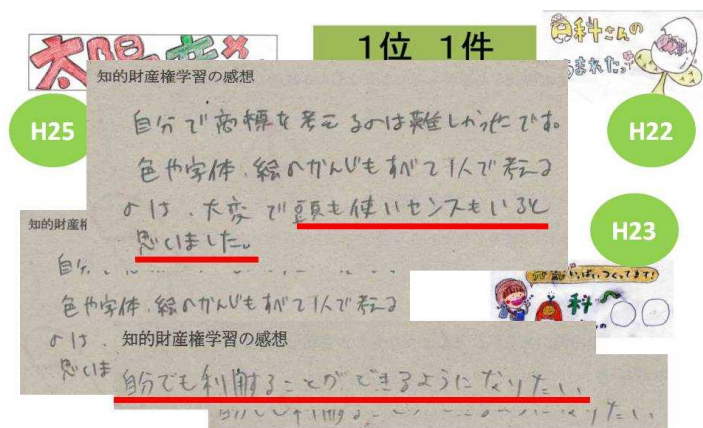 1位 1件
太陽
H25
H22
H23
知的財産権学習の感想
自分で商標を考えるのは難しかったです。
色や字体、絵のかんじもすべて1人で考える
のは、大変で頭も使いセンスもいると
思いました。
知的財産
色や字体、絵のかんじもすべて1人で考える
のは、
思いま
いっぱいつくってます!
科
知的財産権学習の感想
自分でも利用することができるようになりたい。